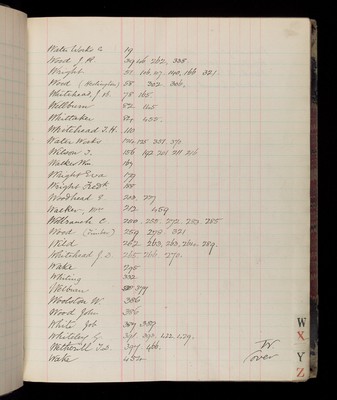 Water Works Co 19
Wood J. H. 39 46 262, 338
Wright 51. 116, 117, 140, 166 321.
Wood 58. 302 306.
Whitehead, J. H. 78 165.
Wellburn 82 145
Whittaker 84 432.
Whitehead T. H. 110
Water Works
Wilson J. 156 192 201 211 216
Walker Wm 167
Wright Eva 179
Wright Fredk 188
Woodhead E. 203 277
Walker, Wm 212 459
Wilbranch C. 220 250. 272. 283. 285
Wood (Timber) 259 278 321
Wild 262 263, 263, 264, 289.
Whitehead J. D. 265 266 270.
Wake 295
Whiting 332
Welburn 379
Woolston W. 386
Wood John 386
White Job 389 389
Whiteley G. 391 392, 422, 429.
Wetherill T. W. 397 466.
Wake 452
Over
W
X
Y
Z